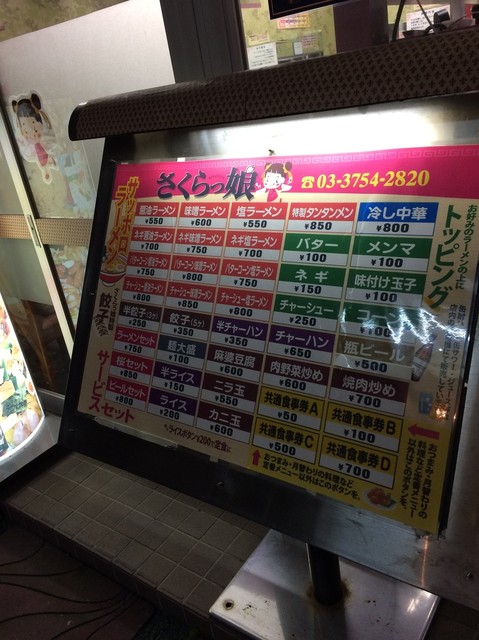 サッポロラーメン
さくらっ娘
☎03-3754-2820
醤油ラーメン ¥550
味噌ラーメン ¥600
塩ラーメン ¥550
特製タンタンメン ¥850
冷し中華 ¥800
ネギ醤油ラーメン ¥700
ネギ味噌ラーメン ¥750
ネギ塩ラーメン ¥700
バター ¥100
メンマ ¥100
バターコーン醤油ラーメン ¥750
バターコーン味噌ラーメン ¥800
バターコーン塩ラーメン ¥750
ネギ ¥150
味付け玉子 ¥100
チャーシュー醤油ラーメン ¥800
チャーシュー味噌ラーメン ¥850
チャーシュー塩ラーメン ¥800
チャーシュー ¥250
コーン
半餃子(3ケ) ¥250
餃子(5ケ) ¥350
半チャーハン ¥350
チャーハン ¥650
瓶ビール ¥500
ラーメンセット ¥750
麺大盛 ¥100
麻婆豆腐 ¥600
肉野菜炒め ¥600
焼肉炒め ¥700
桜セット ¥850
半ライス ¥150
ニラ玉 ¥550
共通食事券A ¥50
共通食事券B ¥100
ビールセット ¥800
ライス ¥200
カニ玉 ¥600
共通食事券C ¥500
共通食事券D ¥700
餃子
サービスセット
ライスボタン¥200で定食に
お好みのラーメンの上に
トッピング
おつまみ・月替わりの料理など
定番メニュー以外はこのボタンを。
おつまみ・月替わりの
料理など定番メニュー
以外はこのボタンを。